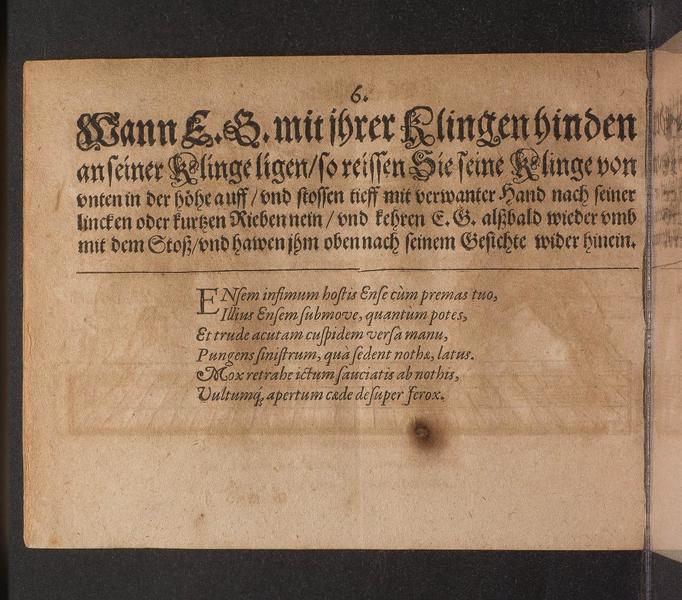 6.
Wann E. G. mit jhrer Klingen hinden
an seiner Klinge ligen/ so reissen Sie seine Klinge von
vnten in der höhe auff/ vnd stossen tieff mit verwanter Hand nach seiner
lincken oder kurtzen Rieben nein/ vnd kehren E. G. alßbald wieder vmb
mit dem Stoß/ vnd hawen jhm oben nach seinem Gesichte wider hinein.
ENsem infimum hostis Ense cùm premas tuo,
Illius Ensem submove, quantum potes,
Et trude acutam cuspidem versa manu,
Pungens sinistrum, quà sedent nothæ, latus.
Mox retrahe ictum sauciatis ab nothis,
Vultumq; apertum cæde desuper ferox.